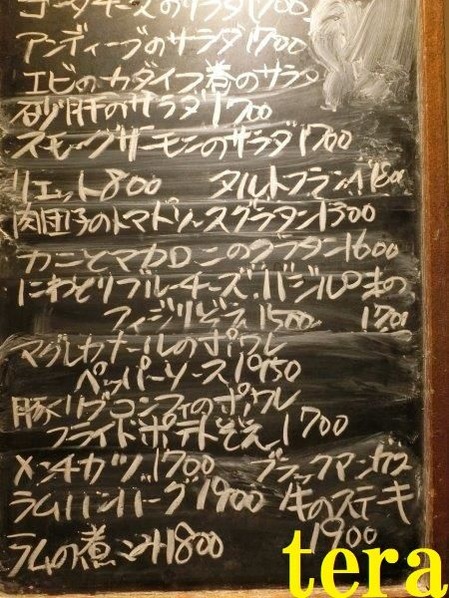 ゴーダチーズのサラダ1700
アンディーブのサラダ1700
エビのカダイフ巻のサラ
砂肝のサラダ1700
スモークサーモンのサラダ1700
リエット800 タルトフランベ1800
肉団子のトマトソースグラタン1300
カニとマカロニのグラタン1600
にわとりブルーチーズ、バジル
フィジリどえ1500 1700
マグレカナールのポワレ
ペッパーソース1950
豚バラコンフィのポワレ
フライドポテトぞえ1700
メンチカツ1700 ブラックアンガス
ラムハンバーグ1900 牛のステーキ
ラムの煮こみ1800 1900
tera